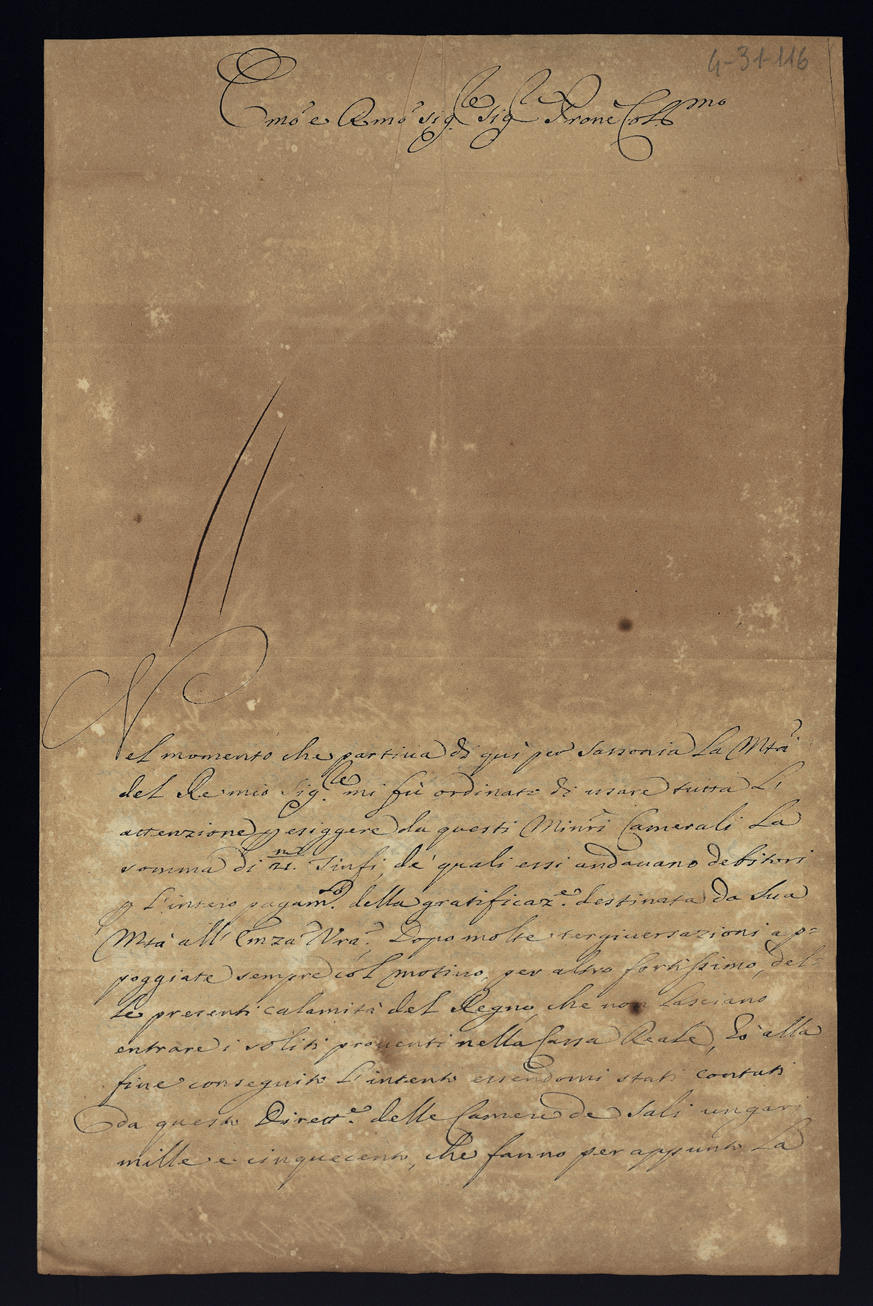 4-31-116
Emo e Rmo Sig.re Sig.re Prone Col.mo
Nel momento che partiva di quì per Sassonia La Mtà
del Re mio Sig.re mi fù ordinato di usare tutta L'
attenzione p esiggere da questi Minri Camerali La
somma di Tinfi, de' quali essi andavano debitori
p L'intero pagam.to della gratificaz.e destinata da Sua
Mtà all' Emza Vra. Dopo molte tergiversazioni ap=
poggiate sempre col motivo, per altro fortissimo, del=
le presenti calamità del Regno, che non Lasciano
entrare i soliti proventi nella Cassa Reale, hò alla
fine conseguito L'intento essendomi stati contati
da questo Dirett.e delle Camere de Sali ungari
mille e cinquecento, che fanno per appunto La